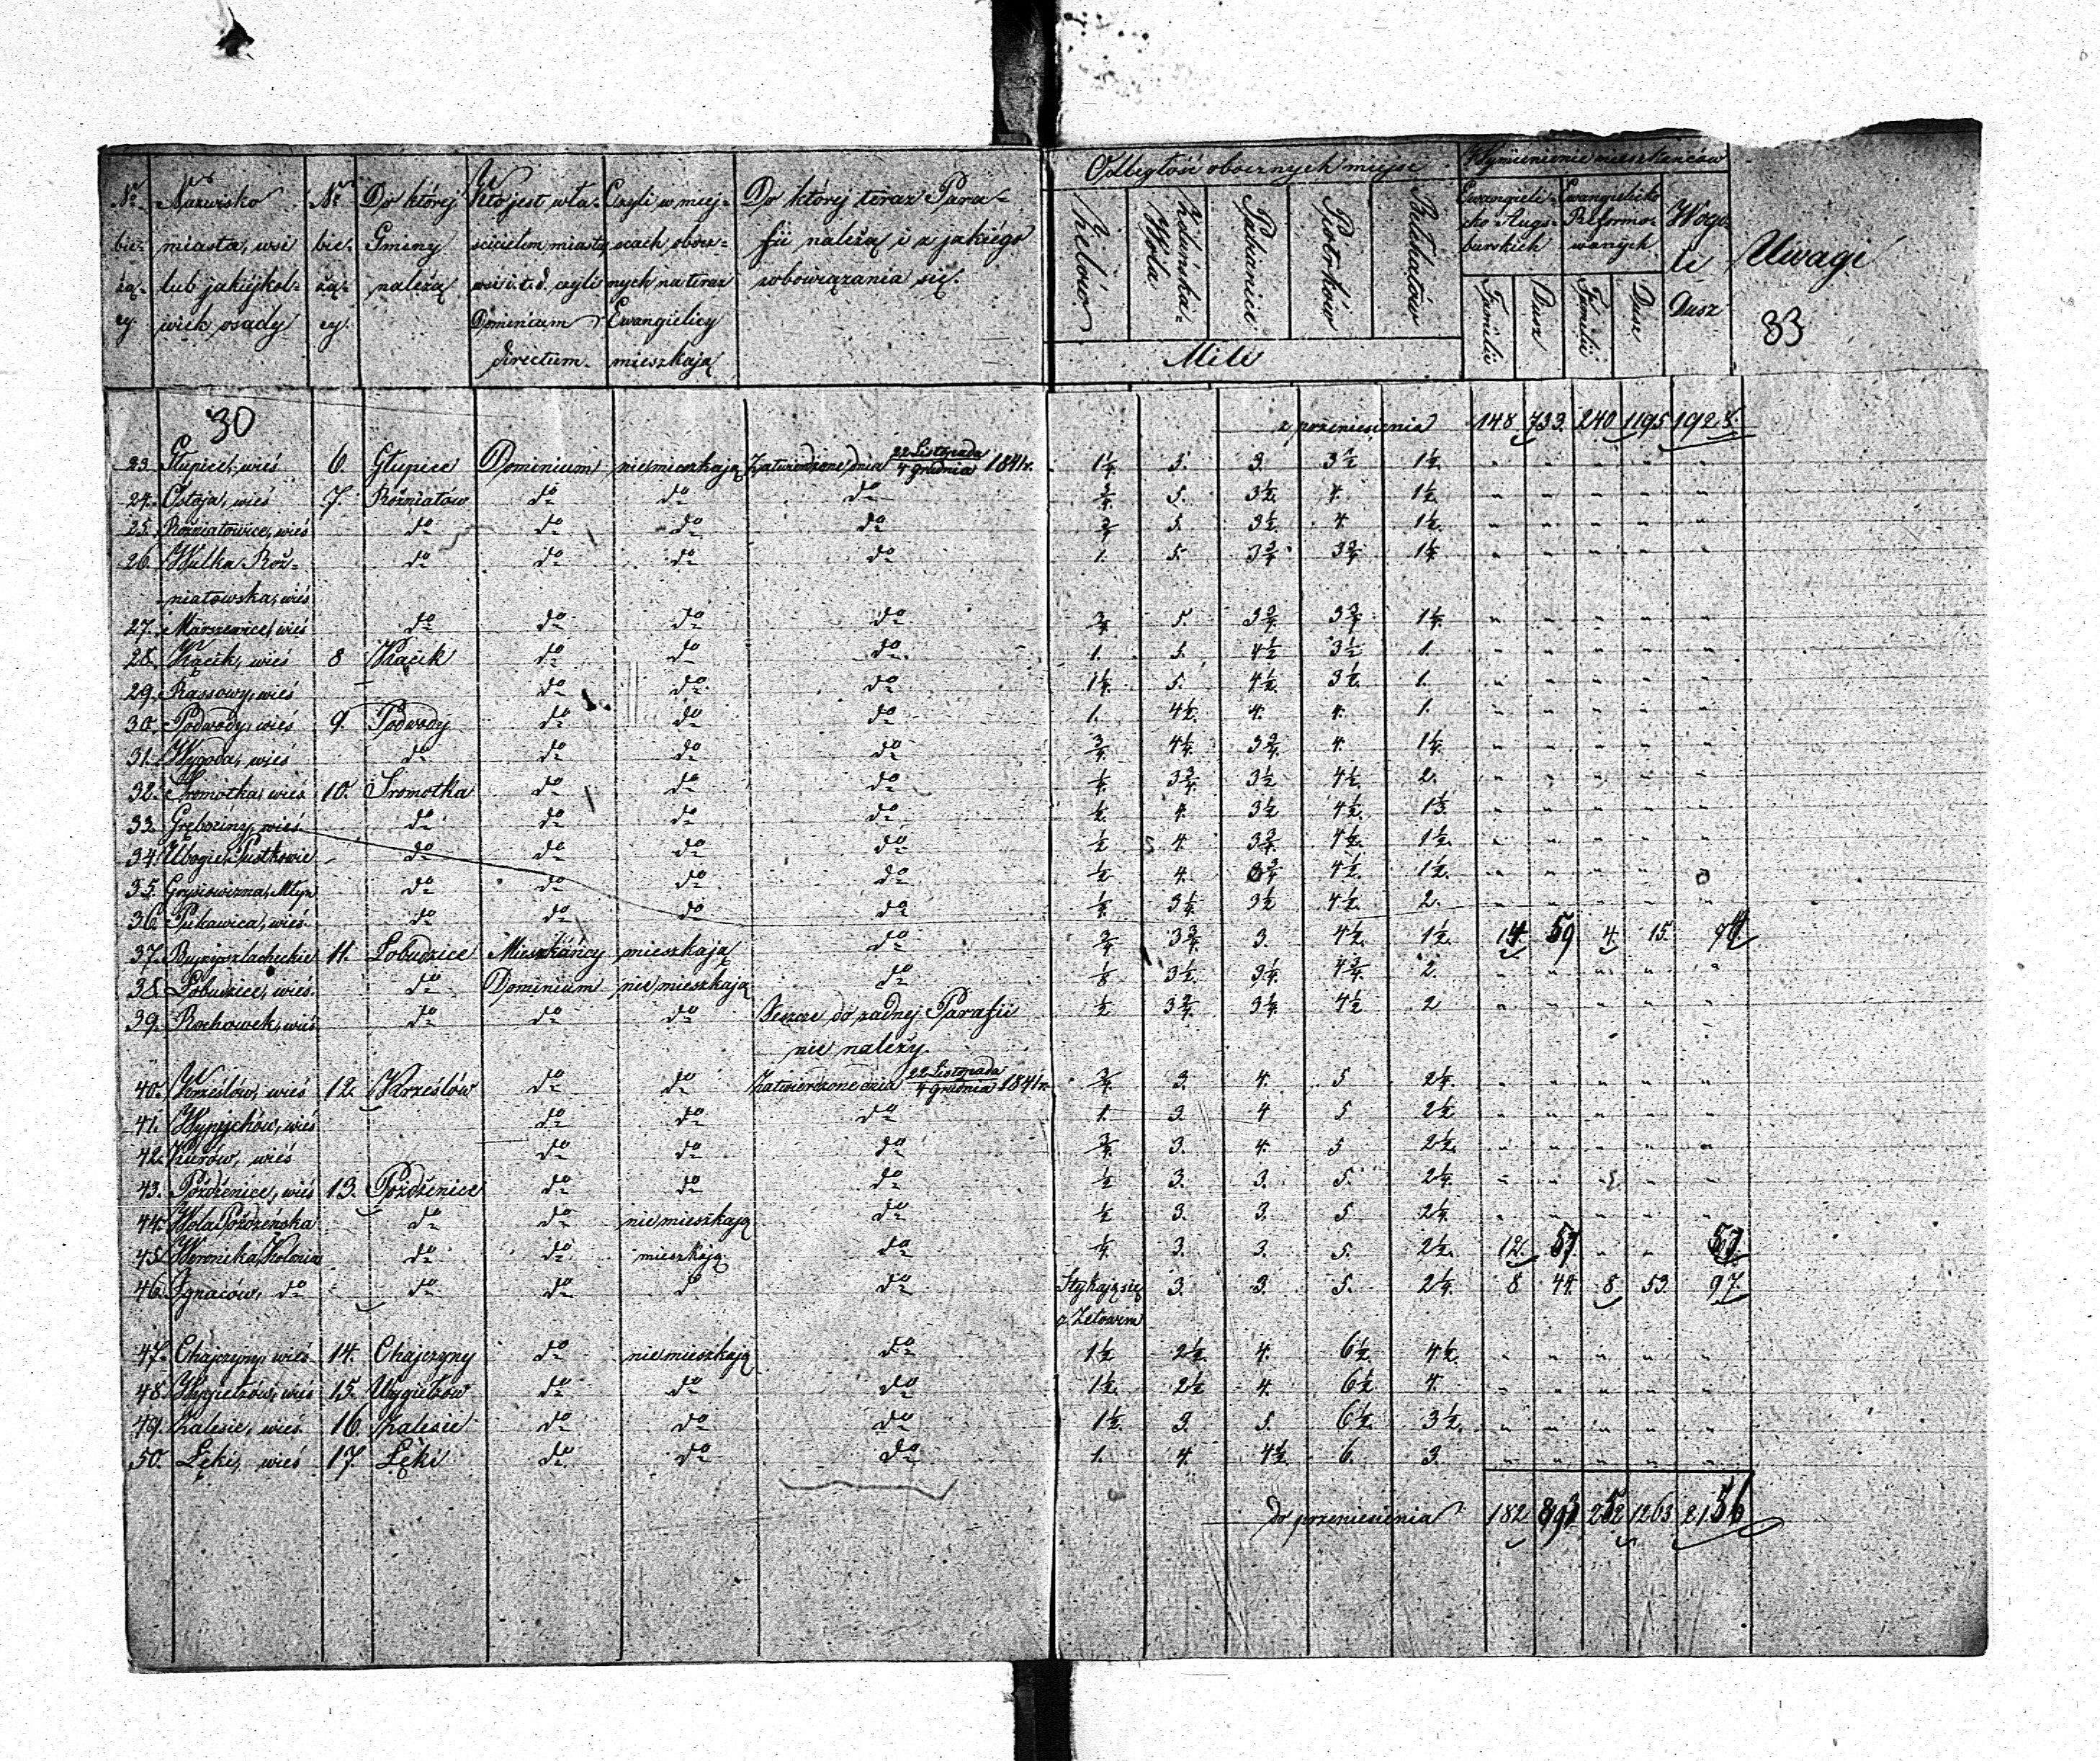 Nr bieżący | Nazwisko miasta, wsi lub jakiéjkolwiek osady | Nr bieżący | Do któréj Gminy należą | Kto jest właścicielem miasta, wsi i.t.d. czyli Dominium directum | Czyli w miejscach obocznych na teraz Ewangielicy mieszkają | Do któréj teraz Parafii należą i z jakiégo zobowiązania się. | Odległość obocznych miejsc | Wymienienie mieszkańców | Wogóle Dusz | Uwagi
Zelów | Zduńska-Wola | Pabianice | Piotrków | Bełchatów | Ewangielicko-Augsburskich | Ewangielicko Reformowanych
Mile | Familii | Dusz | Familii | Dusz
33
30
z przeniesienia 148 733 240 1195 1928.
23. Głupice, wieś 6. Głupice Dominium nie mieszkają Zatwierdzone dnia 22 Listopada/4 Grudnia 1841 r. 1¼ 5. 3. 3½ 1½ " " " " "
24. Ostoja, wieś 7. Rożniatów do do do ¾ 5. 3½ 4. 1½ " " " " "
25. Rożniatowice, wieś do do do do ¾ 5. 3½ 4. 1½ " " " " "
26. Wulka Roż- do do do do 1. 5. 3¾ 3¾ 1¼ " " " " "
niatowska, wieś
27. Marszewice, wieś do do do do ¾ 5 3¾ 3¾ 1¼ " " " " "
28. Kącik, wieś 8 Kącik do do do 1. 5. 4½ 3½ 1. " " " " "
29. Rassowy, wieś do do do 1¼ 5. 4½ 3½ 1. " " " " "
30. Podwody, wieś 9. Podwody do do do 1. 4½ 4. 4. 1. " " " " "
31. Wygoda, wieś do do do do ¾ 4¼ 3¾ 4. 1¼ " " " " "
32. Sromotka, wieś 10. Sromotka do do do ¼ 3¾ 3½ 4½ 2. " " " " "
33. Grębociny, wieś do do do do ½ 4. 3½ 4½ 1½ " " " " "
34. Ubogie, Pustkowie do do do do ½ 4. 3¾ 4½ 1½ " " " " "
35. Grysiowizna, Młyn do do do do ½ 4. 3¾ 4½ 1½ " " " " "
36. Pukawica, wieś do do do do ¼ 3¼ 3½ 4½ 2. " " " " "
37. Bujny szlacheckie 11. Łobudzice Mieszkańcy mieszkają do ¾ 3¾ 3. 4½ 1½ 14. 59 4. 15. 74
38. Łobudzice, wieś do Dominium nie mieszkają do 3½ 3¼ 4¾ 2. " " " " "
39. Rochowek, wieś do do do Jeszcze do żadnéj Parafii ½ 3¾ 3¼ 4½ 2 " " " " "
nie należy.
40. Krześlów, wieś 12. Krześlów do do Zatwierdzone dnia 22 Listopada/4 Grudnia 1841 r. ¾ 3. 4. 5 2¼ " " " " "
41. Wypychów, wieś do do do 1. 3. 4 5 2½ " " " " "
42. Kurów, wieś do do do ¾ 3. 4. 5 2½ " " " " "
43. Pożdżenice, wieś 13. Pożdżenice do do do ½ 3. 3. 5. 2¼ " " " " "
44. Wola Pożdżeńska do do nie mieszkają do ½ 3. 3. 5 2¼ " " " " "
45. Weronika, Kolonia do do mieszkają do ¼ 3. 3. 5. 2½ 12. 57 " " 57
46. Ignaców, do do do do do Stykają się 3. 3. 5. 2¼ 8 44. 8 53. 97
z Zelowem
47. Chajczyny, wieś 14. Chajczyny do nie mieszkają do 1½ 2½ 4. 6½ 4½ " " " " "
48. Wygiełzów, wieś 15. Wygiełzów do do do 1½ 2½ 4. 6½ 4. " " " " "
49. Zalesie, wieś 16. Zalesie do do do 1½ 3. 5. 6½ 3½ " " " " "
50. Łęki, wieś 17. Łęki do do do 1. 4. 4½ 6. 3. " " " " "
Do przeniesienia 182 893 252 1263 2156